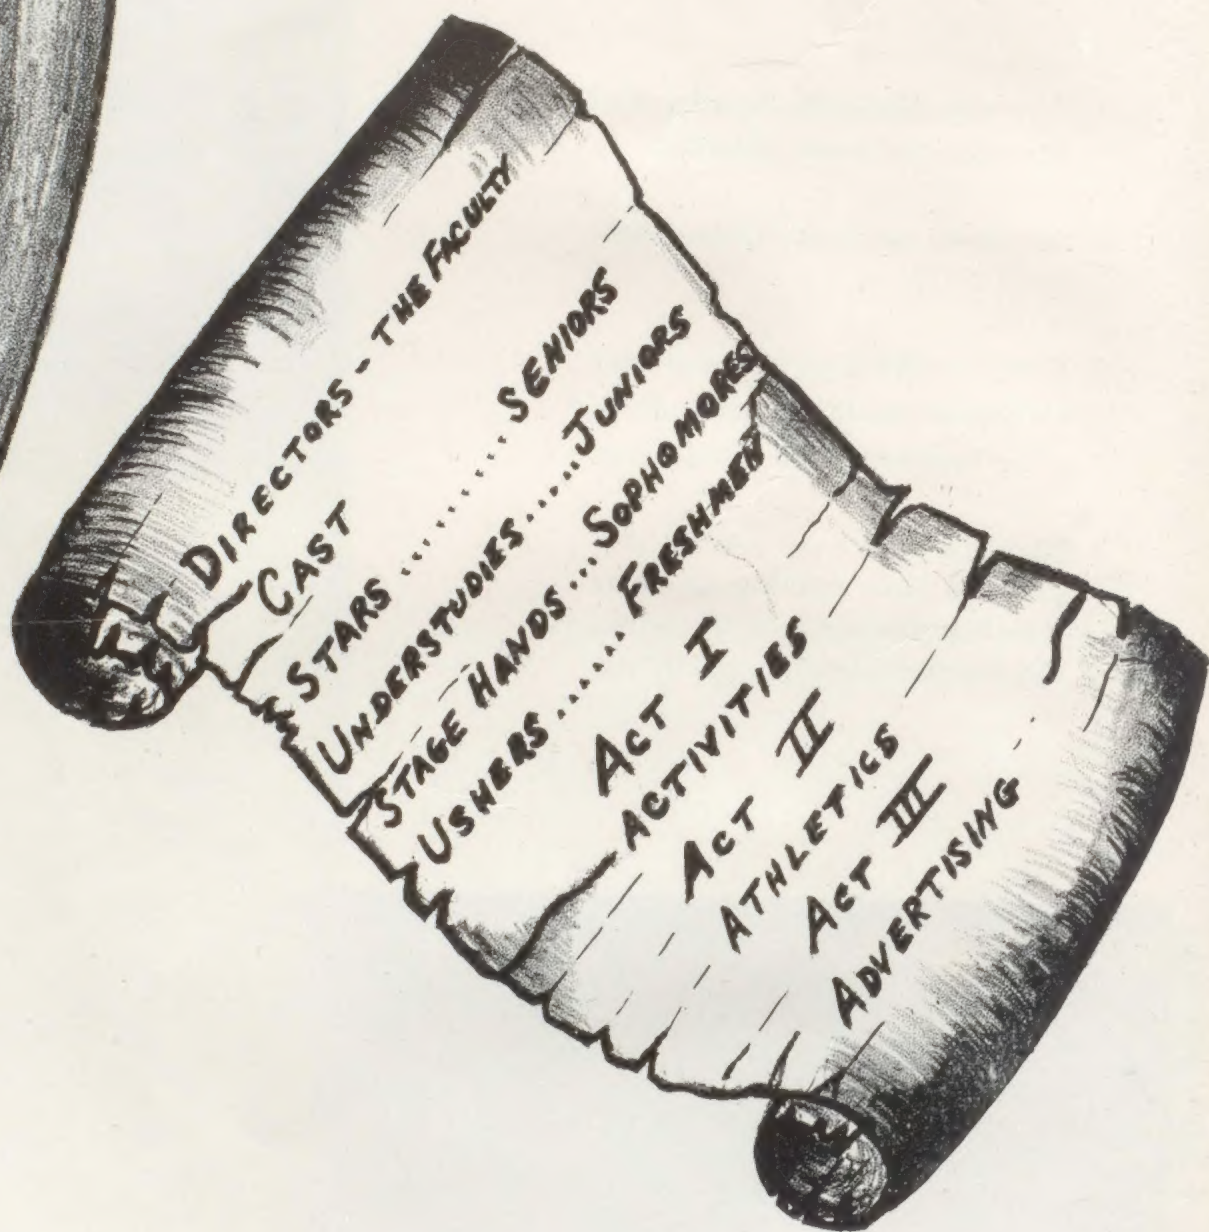 DIRECTORS - THE FACULTY
CAST
STARS .......... SENIORS
UNDERSTUDIES ..... JUNIORS
STAGE HANDS ... SOPHOMORES
USHERS ...... FRESHMEN
ACT I
ACTIVITIES
ACT II
ATHLETICS
ACT III
ADVERTISING